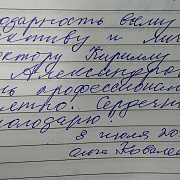 одарность выли
ективу и
ектору Кириллу
Александро
нь профессионал
метро. Сердечн
лагодарю"
8 июля 20
Ольга Ковале